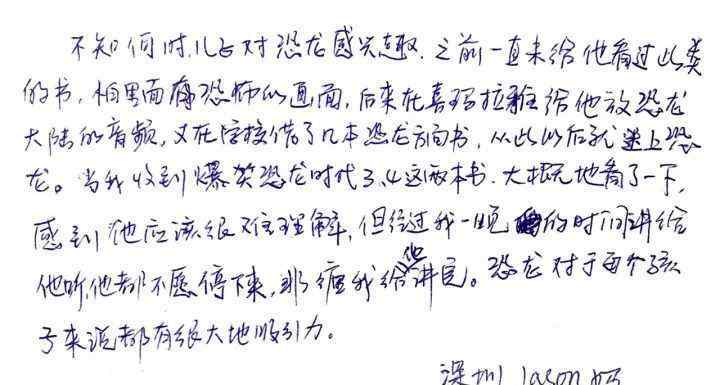 不知何时,儿子对恐龙感兴趣.之前一直未给他看过此类
的书,怕里面有恐怖的画面,后来在喜玛拉雅给他放恐龙
大陆的音频,又在学校借了几本恐龙方面书,从此以后就迷上恐
龙。当我收到爆笑恐龙时代3、4这两本书.大概地看了一下,
感到他应该很难理解,但经过我一晚的时间讲给
他听,他都不愿停下来,非缠我给他讲完。恐龙对于每个孩
子来说都有很大地吸引力。
深圳Jason妈